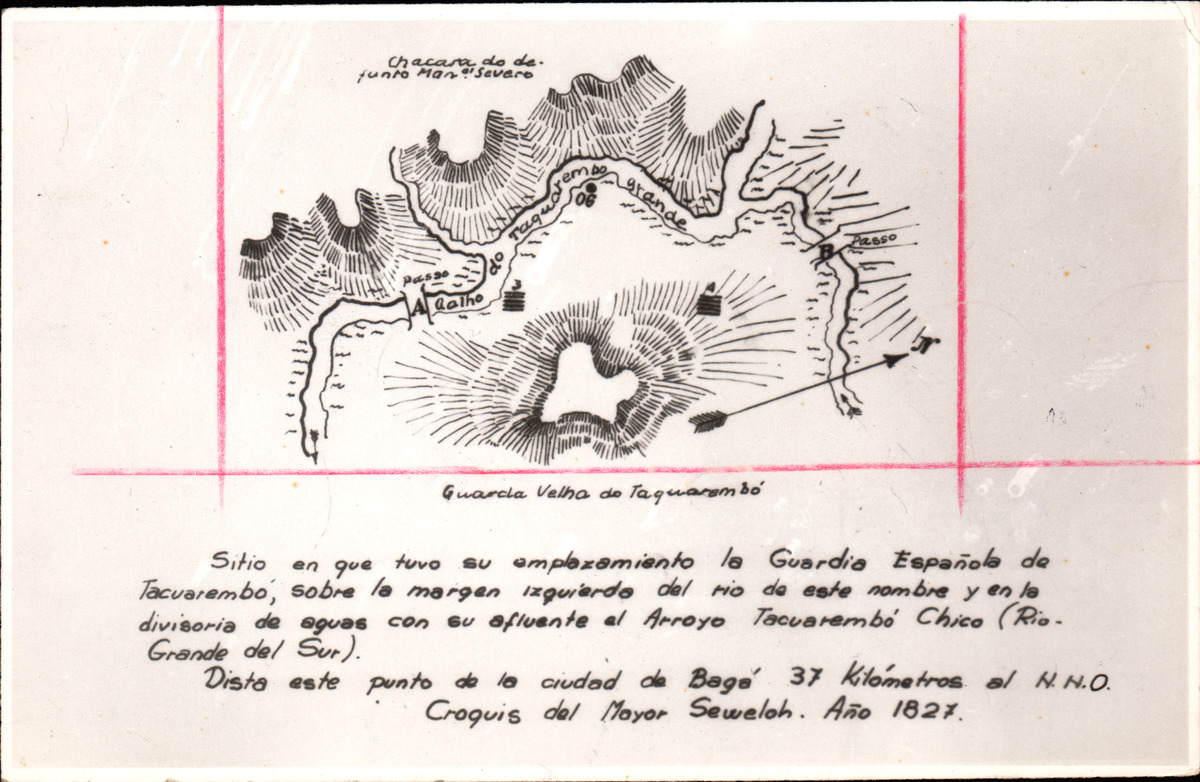 Chacara do de-
funto Man.el Severo
Galho do Taquarembo grande
06
Passo
A
3
4
B
Passo
N
Guarda Velha do Taquarembó
Sitio en que tuvo su emplazamiento la Guardia Española de
Tacuarembó, sobre la margen izquierda del rio de este nombre y en la
divisoria de aguas con su afluente el Arroyo Tacuarembó Chico (Rio-
Grande del Sur).
Dista este punto de la ciudad de Bagé 37 Kilómetros al N.N.O.
Croquis del Mayor Seweloh. Año 1827.